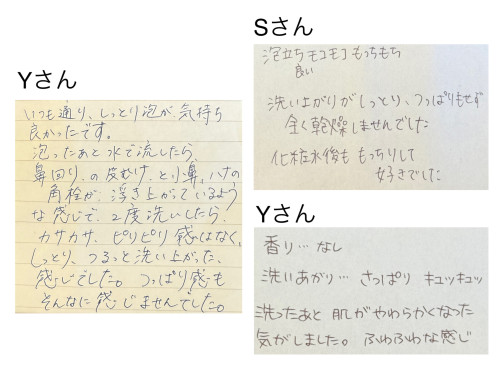 Yさん
いつも通り、しっとり泡が、気持ち
良かったです。
泡ったあと水で流したら、
鼻回り、の皮むけ、と小鼻、ハナの
角栓が、浮き上がっているよう
な感じで、2度洗いしたら、
カサカサ、ピリピリ感はなく、
しっとり、つるっと洗い上がった、
感じでした。つっぱり感も
そんなに感じませんでした。
Sさん
泡立ちモコモコ もっちもち
良い
洗い上がりがしっとり、つっぱりもせず
全く乾燥しませんでした
化粧水後も もっちりして
好きでした
Yさん
香り…なし
洗いあがり… さっぱり キュッキュッ
洗ったあと 肌がやわらかくなった
気がしました。ふわふわな感じ